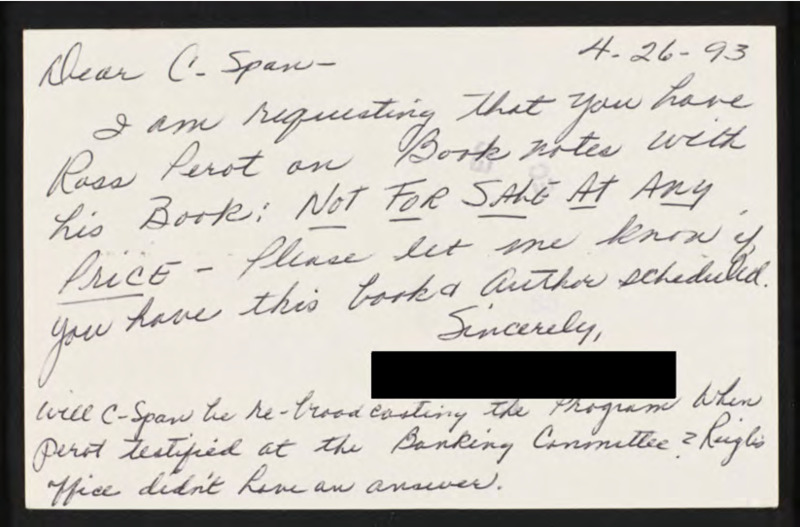 4-26-93
Dear C-Span-
I am requesting that you have
Ross Perot on Book notes with
his Book: NOT FOR SALE At ANy
PRICE - Please let me know if
you have this book & Author scheduled.
Sincerely,
Will C-Span be re-broadcasting the Program when
Perot testified at the Banking Committee? Riegle's
office didn't have an answer.